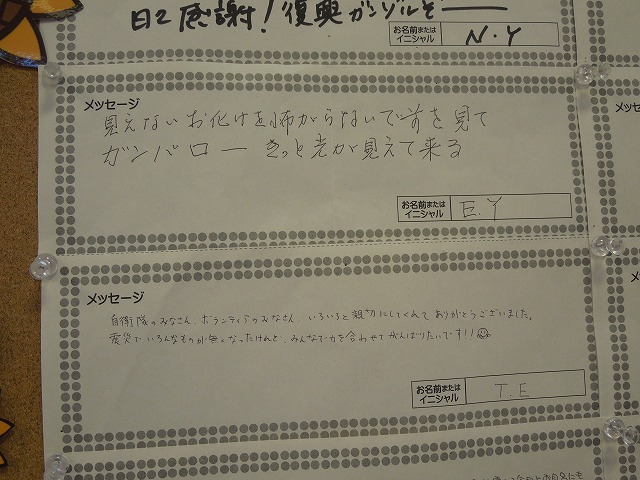 日々感謝！復興ガンバルぞ
お名前または
イニシャル
N.Y
メッセージ
見えないお化けを怖がらないで前を見て
ガンバロー きっと光が見えて来る
お名前または
イニシャル
E.Y
メッセージ
自衛隊のみなさん、ボランティアのみなさん、いろいろと親切にしてくれてありがとうございました。
震災でいろんなものが無くなったけれど、みんなで力を合わせてがんばりたいです!!
お名前または
イニシャル
T.E